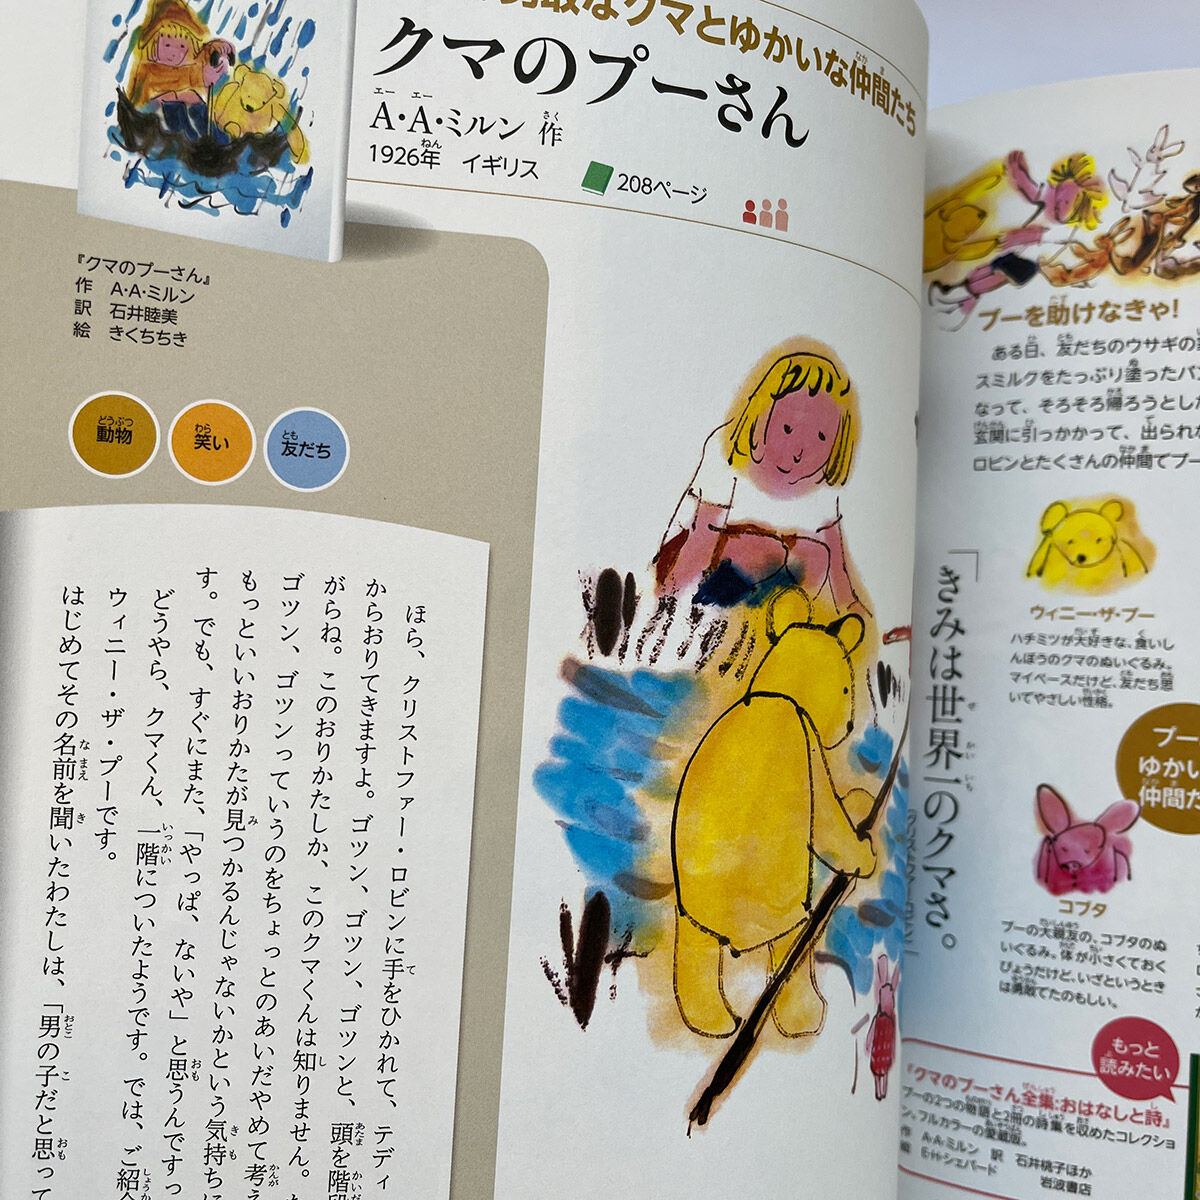 勇敢なクマとゆかいな仲間たち
クマのプーさん
A・A・ミルン 作
1926年 イギリス
208ページ
『クマのプーさん』
作 A・A・ミルン
訳 石井睦美
絵 きくちちき
動物
笑い
友だち
ほら、クリストファー・ロビンに手をひかれて、テディ
からおりてきますよ。ゴツン、ゴツン、ゴツンと、頭を階段
がらね。このおりかたしか、このクマくんは知りません。
ゴツン、ゴツンっていうのをちょっとのあいだやめて考え
もっといいおりかたが見つかるんじゃないかという気持ちに
す。でも、すぐにまた、「やっぱ、ないや」と思うんですっ
どうやら、クマくん、一階についたようです。では、ご紹介
ウィニー・ザ・プーです。
はじめてその名前を聞いたわたしは、「男の子だと思って
プーを助けなきゃ!
ある日、友だちのウサギの
スミルクをたっぷり塗ったパン
なって、そろそろ帰ろうとした
玄関に引っかかって、出られな
ロビンとたくさんの仲間でプー
「きみは世界一のクマさ。」
(クリストファー・ロビン)
ウィニー・ザ・プー
ハチミツが大好きな、食いし
んぼうのクマのぬいぐるみ。
マイペースだけど、友だち思
いでやさしい性格。
プー
ゆかい
仲間た
コブタ
プーの大親友の、コブタのぬ
いぐるみ。体が小さくておく
びょうだけど、いざというとき
は勇敢でたのもしい。
もっと
読みたい
『クマのプーさん全集:おはなしと詩』
プーの2つの物語と2冊の詩集を収めたコレクショ
ン。フルカラーの愛蔵版。
作 A・A・ミルン 訳 石井桃子ほか
E・H・シェパード
岩波書店